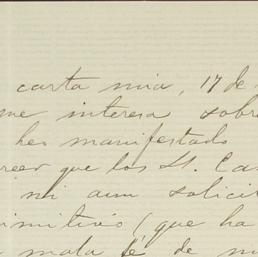 carta mia, 17 de
me interesa sobre
hes manifestado
creer que los Sr. Ca
ni aun solicit
imitivos (que ha
mala fé de m